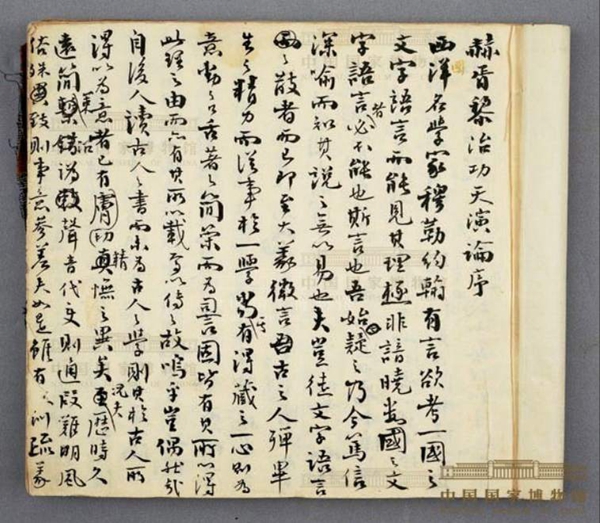 赫胥黎治功天演論序
西洋名學家穆勒約翰有言欲考一國之
文字語言而能見其理極非諳曉數國之文
字語言者必不能也斯言也吾始疑之乃今篤信
深喻而知其說之無以易也夫豈徒文字語言
之散者而已即至大義微言古之人殫畢
生之精力而從事於一學當有得藏之一心則為
意動之口舌著之簡策而為言固皆有其所以得
此理之由而亦有其所以載焉以傳之故嗚乎豈偶然哉
自後人讀古人之書而未為古人之學則其於古人所
得以為意者已有膚精之異矣況夫歷時久
遠簡策錯譌聲音代變則通叚難明風
俗殊致則事意參差夫如是雖有訓疏義
中国国家博物館